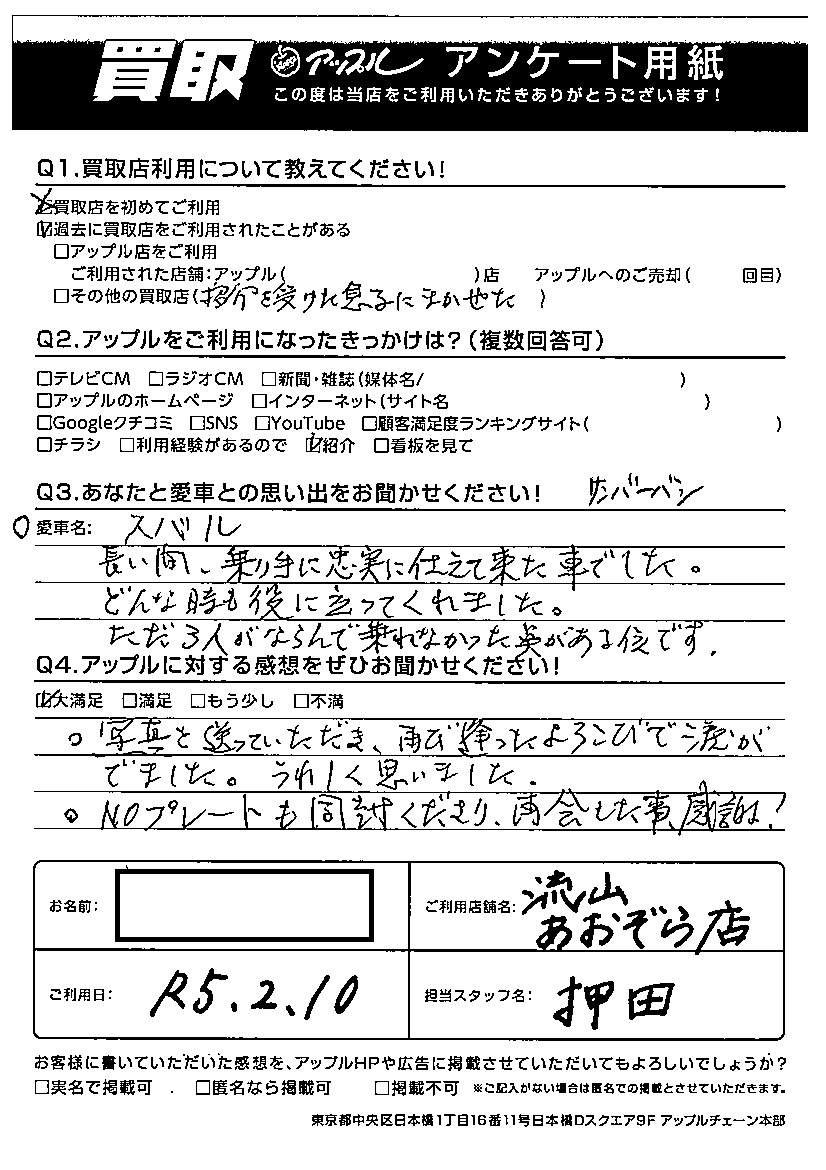 買取 アップル アンケート用紙
この度は当店をご利用いただきありがとうございます！
Q1.買取店利用について教えてください！
☑買取店を初めてご利用
☑過去に買取店をご利用されたことがある
□アップル店をご利用
ご利用された店舗：アップル（　　　）店　アップルへのご売却（　　回目）
□その他の買取店（紹介を受けた息子にまかせた）
Q2.アップルをご利用になったきっかけは？（複数回答可）
□テレビCM　□ラジオCM　□新聞・雑誌（媒体名/　　　）
□アップルのホームページ　□インターネット（サイト名　　　）
□Googleクチコミ　□SNS　□YouTube　□顧客満足度ランキングサイト（　　　）
□チラシ　□利用経験があるので　☑紹介　□看板を見て
Q3.あなたと愛車との思い出をお聞かせください！　サンバーバン
○愛車名：スバル
長い間、乗り手に忠実に仕えて来た車でした。
どんな時も役に立ってくれました。
ただ3人がならんで乗れなかった事がある位です.
Q4.アップルに対する感想をぜひお聞かせください！
☑大満足　□満足　□もう少し　□不満
○写真を送っていただき、再び逢ったよろこびで涙が
でました。うれしく思いました.
○NOプレートも同封くださり、再会した事、感謝!
お名前：
ご利用店舗名：流山
あおぞら店
ご利用日：R5.2.10
担当スタッフ名：押田
お客様に書いていただいた感想を、アップルHPや広告に掲載させていただいてもよろしいでしょうか？
□実名で掲載可　.　□匿名なら掲載可　□掲載不可　※ご記入がない場合は匿名での掲載とさせていただきます。
東京都中央区日本橋1丁目16番11号日本橋Dスクエア9F アップルチェーン本部